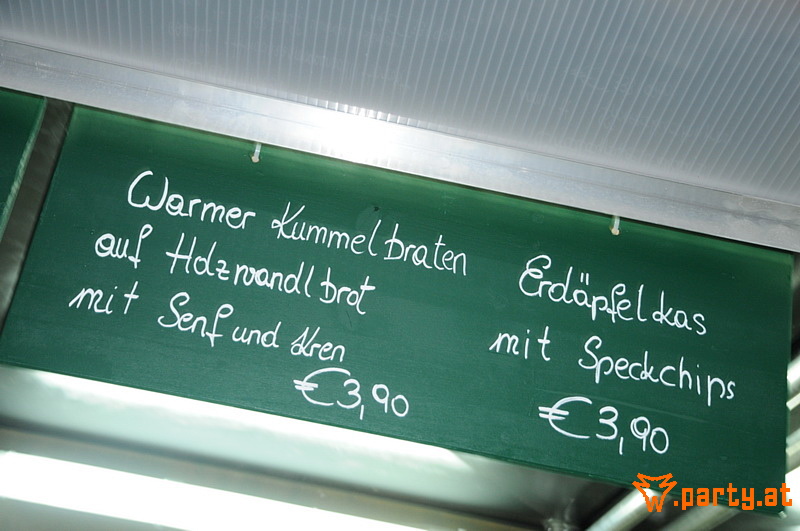 Warmer Kummelbraten
auf Holzwandlbrot
mit Senf und Kren
€3,90
Erdäpfelkas
mit Speckchips
€3,90
.party.at